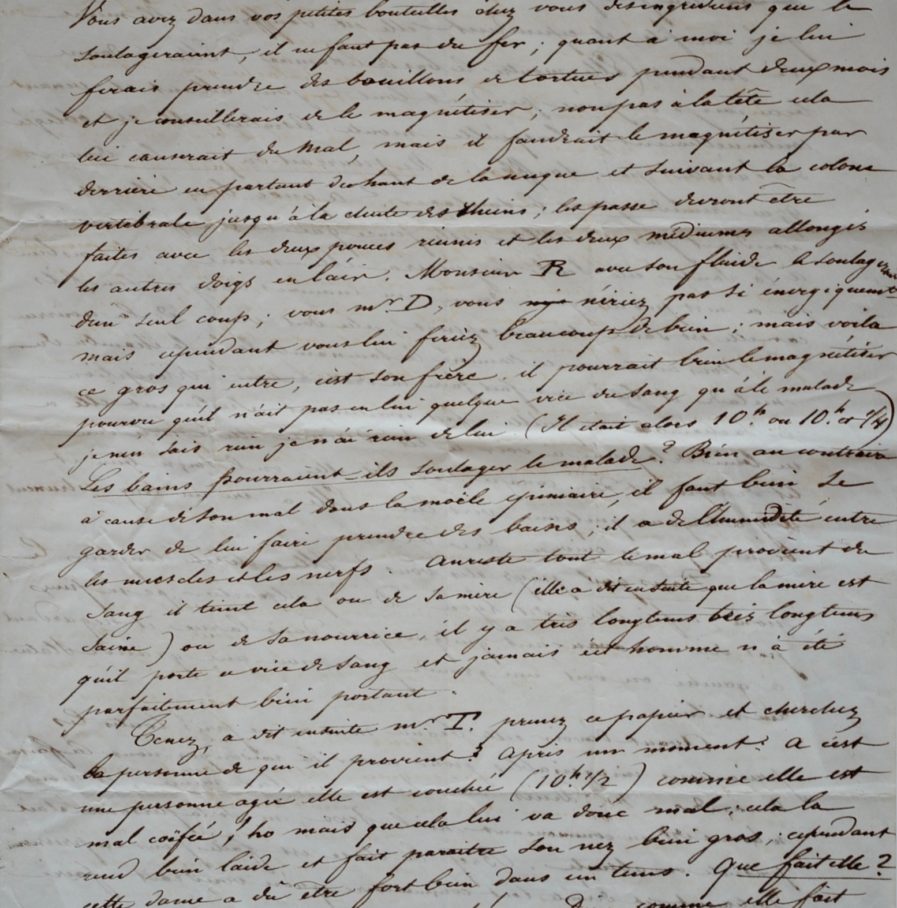 Vous avez dans vos petites bouteilles chez vous des ingrediens qui le
soulageraient, il ne faut pas du fer ; quant à moi je lui
ferais prendre des bouillons de tortues pendant deux mois
et je conseillerais de le magnétiser ; non pas à la tête cela
lui causerait du mal, mais il faudrait le magnétiser par
derriere en partant du haut de la nuque et suivant la colone
vertébrale jusqu'à la chute des rheins ; les passe devront être
faites avec les deux pouces réunis et les deux mediumes allongés
les autres doigs en l'air. Monsieur R avec son fluide le soulagerait
d'un seul coup ; vous mr. D, vous n'iriez pas si énergiquemt
mais cependant vous lui feriez beaucoup de bien ; mais voila
ce gros qui entre, c'est son frère. il pourrait bien le magnétiser
pourvu qu'il n'ait pas en lui quelque vice du sang qu'à le malade
je n'en sais rien je n'ai rien de lui (Il était alors 10h. ou 10h. et 1/4)
Les bains pourraient-ils soulager le malade ? Bien au contraire
à cause de son mal dans la moële épiniaire, il faut bien se
garder de lui faire prendre des bains ; il a de l'humidité entre
les muscles et les nerfs. Au reste tout le mal provient du
sang il tient cela ou de sa mère (elle a dit ensuite que la mère est
saine) ou de sa nourrice, il y a très longtems très longtems
qu'il porte ce vice de sang et jamais cet homme n'à été
parfaitement bien portant.
Tenez, a dit ensuite mr T. prenez ce papier et cherchez
la personne de qui il provient ? Après un moment : a c'est
une personne agée elle est couchée (10h. 1/2) comme elle est
mal coëfée, ho mais que cela lui va donc mal ; cela la
rend bien laide et fait paraitre son nez bien gros ; cependant
cette dame a dû être fort bien dans un tems. Que fait elle ?
comme elle fait